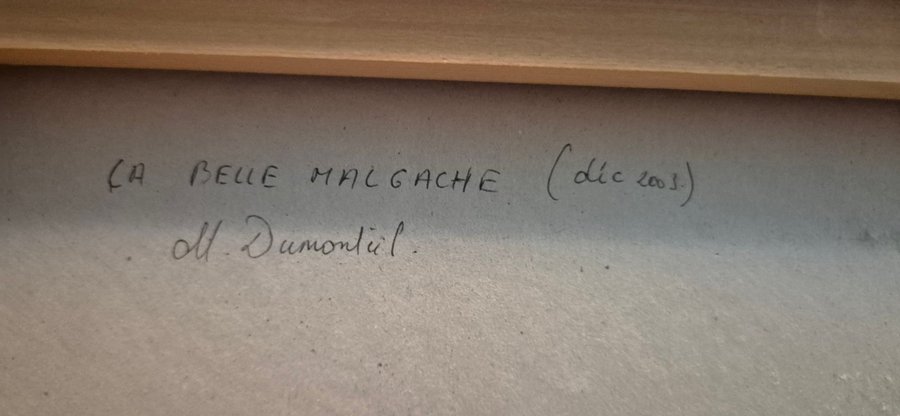 LA BELLE MALGACHE (déc 2003.)
M. Dumontiel.